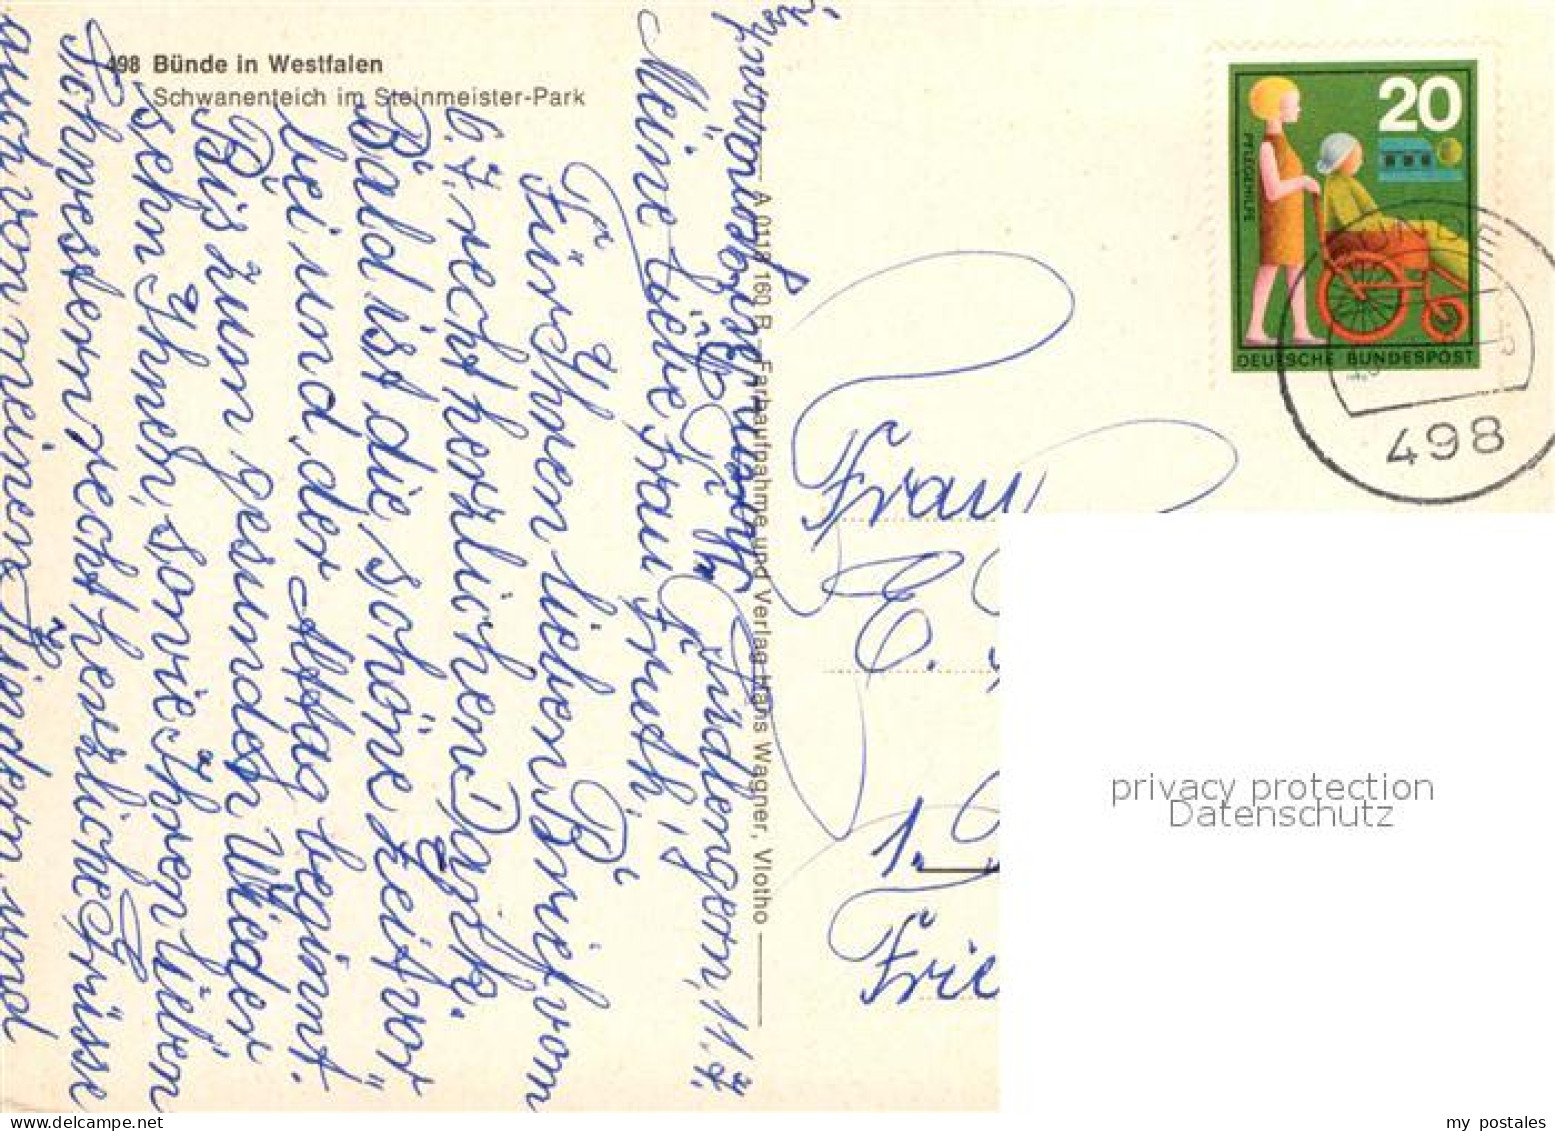 498 Bünde in Westfalen
Schwanenteich im Steinmeister-Park
A 0118 160 R – Farbaufnahme und Verlag Hans Wagner, Vlotho
20
PFLEGEHILFE
DEUTSCHE BUNDESPOST
498
11.7.
Meine liebe Frau
Für Ihren lieben Brief vom
6.7. recht herzlichen Dank.
Bald ist die schöne Zeit vor"
bei und der Alltag beginnt.
Bis zum gesunden Wieder
sehn Ihnen, sowie Ihren lieben
Schwestern recht herzliche Grüsse
auch von meinen Kindern und
Frau
1.
Frie
privacy protection
Datenschutz
my postales